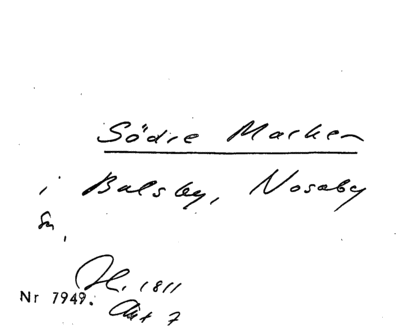 Södre Marken
i Balsby, Nosaby
Sn,
H. 1811
Nr 7949. Akt 7